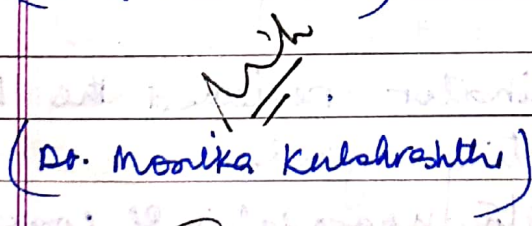 (Dr. Monika Kulshrashthi)